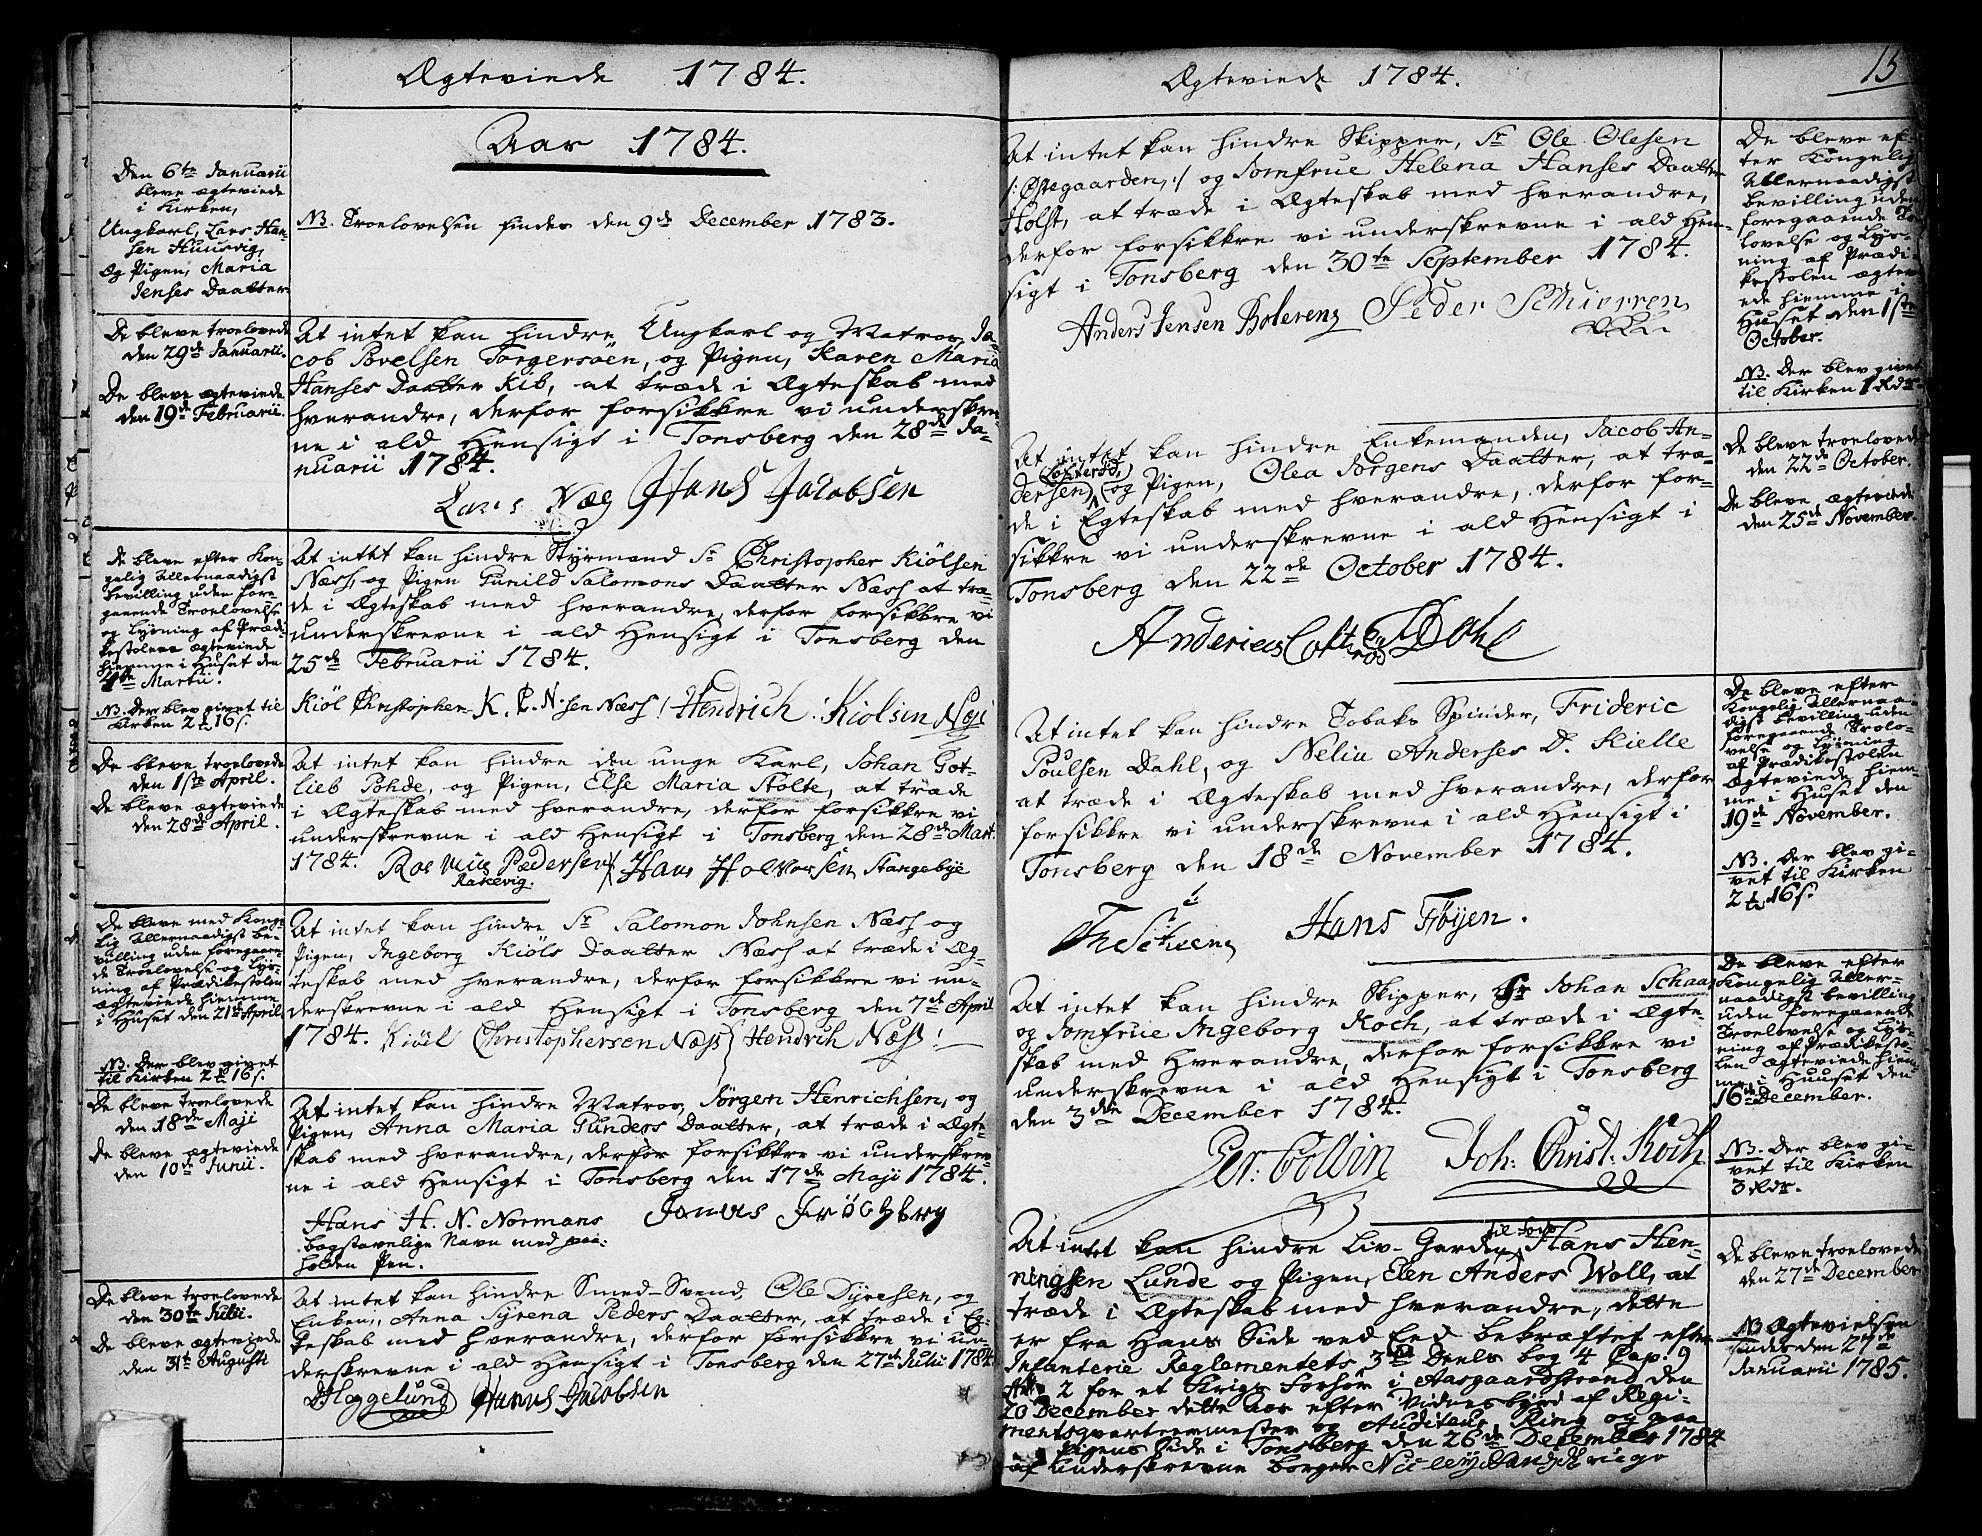 Ægteviede 1784.
Aar 1784.
Den 6te Januarii
bleve ægteviede
i Kirken,
Ungkarl, Lars Han-
sen Huusvig,
og Pigen, Maria
Jenses Daatter.
NB. Troelovelsen findes den 9de December 1783.
De bleve troelovede
den 29de Januarii.
De bleve ægteviede
den 19de Februarii.
At intet kan hindre Ungkarl og Matros, Ja-
cob Povelsen Torgersøen, og Pigen, Karen Maria
Hanses Daatter Kib, at træde i Ægteskab med
hverandre, derfor forsikkre vi underskrev-
ne i ald Hensigt i Tonsberg den 28de Ja-
nuarii 1784.
Lars Næs Hans Jacobsen
De bleve efter Kon-
gelig Allernaadigst
bevilling uden fore-
gaaende Troelovelse
og Lysning af Prædi-
kestolen ægteviede
hiemme i Huset den
4de Martii.
NB. Der blev givet til
Kirken 2 16 s.
At intet kan hindre Styrmand Sr Christopher Kiölsen
Næss, og Pigen Gunild Salomons Daatter Næss at træ-
de i Ægteskab med hverandre, derfor forsikkre vi
underskrevne i ald Hensigt i Tonsberg den
25de Februarii 1784.
Kiöl Christophersen K. C. N. sen Næss / Hendrich Kiolsen Næs
De bleve troelovede
den 1ste April.
De bleve ægteviede
den 28de April.
At intet kan hindre den unge Karl, Johan Got-
lieb Pohde, og Pigen, Else Maria Stolte, at træde
i Ægteskab med hverandre, derfor forsikkre vi
underskrevne i ald Hensigt i Tonsberg den 28de Mart.
1784. Rasmus Pedersen Hans Holvorsen Stangebye
Rakevig.
De bleve med Konge-
lig Allernaadigst be-
villing uden foregaaen-
de Troelovelse og Lys-
ning af Prædikestolen
ægteviede hiemme
i Huset den 21de April.
NB. Der blev givet
til Kirken 2 16 s.
At intet kan hindre Sr Salomon Johnsen Næss og
Pigen, Ingeborg Kiöls Daatter Næss at træde i Æg-
teskab med hverandre, derfor forsikkre vi un-
derskrevne i ald Hensigt i Tonsberg den 7de April
1784. Kiöl Christophersen Næss Hendrich Næss
De bleve troelovede
den 18de Maji
De bleve ægteviede
den 10de Junii.
At intet kan hindre Matros, Jørgen Henrichsen, og
Pigen, Anna Maria Gunders Daatter, at træde i Ægte-
skab med hverandre, derfor forsikkre vi underskrev-
ne i ald Hensigt i Tonsberg den 17de Maji 1784.
Hans H. N. Normans Jonas
bogstavelige Navn med paa-
holden Pen.
De bleve troelovede
den 30te Julii.
De bleve ægteviede
den 31te Augusti
At intet kan hindre Smed-Svend, Ole Dyresen, og
Enken, Anna Syrena Peders Daatter, at træde i Æg-
teskab med hverandre, derfor forsikkre vi un-
derskrevne i ald Hensigt i Tonsberg den 27de Julii 1784
Heggelund Hanns Jacobsen
Ægteviede 1784.
15
At intet kan hindre Skipper, Sr Ole Olesen
/: Østegaarden, :/ og Jomfrue Helena Hanses Daatter
Holst, at træde i Ægteskab med hverandre,
derfor forsikkre vi underskrevne i ald Hen-
sigt i Tonsberg den 30te September 1784.
Anders Jensen Bolerens Peder
De bleve ef-
ter Kongelig
Allernaadigst
bevilling uden
foregaaende Tro-
lovelse og Lys-
ning af Prædi-
kestolen ægtevi-
ede hiemme i
Huset den 1ste
October.
NB. Der blev givet
til Kirken 1 Rdr.
At intet kan hindre Enkemanden, Jacob An-
dersen, og Pigen, Olea Jørgens Daatter, at træ-
de i Egteskab med hverandre, derfor for-
sikkre vi underskrevne i ald Hensigt i
Tonsberg den 22de October 1784.
Dahl
De bleve troelovede
den 22de October.
De bleve ægteviede
den 25de November.
At intet kan hindre Tobaks Spinder, Frideric
Poulsen Dahl, og Nelia Anderses D. Kielle
at træde i Ægteskab med hverandre, derfor
forsikkre vi underskrevne i ald Hensigt i
Tonsberg den 18de November 1784.
Hans Föyen.
De bleve efter
Kongelig Allernaa-
digst bevilling uden
foregaaende Trolo-
velse og Lysning
af Prædikestolen
Ægteviede hiem-
me i Huset den
19de November.
NB. Der blev gi-
vet til Kirken
2 16 s.
At intet kan hindre Skipper, Sr Johan Schaar
og Jomfrue Ingeborg Koch, at træde i Ægte
skab med hverandre, derfor forsikkre vi
underskrevne i ald Hensigt i Tonsberg
den 3die December 1784.
Joh: Christ. Koch
De bleve efter
Kongelig Aller-
naadigst bevilling
uden foregaaende
Troelovelse og Lys-
ning af Prædikesto-
len ægteviede hiem-
me i Huuset den
16de December.
NB. Der blev gi-
vet til Kirken
3 Rdr.
At intet kan hindre Liv-Garden til Fods, Hans Hen-
ningsen Lunde og Pigen, Elen Anders Woll, at
træde i Ægteskab med hverandre, dette
er fra Hans Side ved Eed bekræftet efter
Infanterie Reglementets 3die Deels bog 4 Cap. 9
Art. 2 for et Krigs Forhør i Aasgaardstrand den
20 December dette Aar efter Vidnesbyrd af Regi-
mentsqvarteermester og Auditeur Ring og paa
Pigens Side i Tonsberg den 26de December 1784
af underskrevne borger
De bleve troelovede
den 27de December
NB Ægtevielsen
findes den 27de
Januarii 1785.